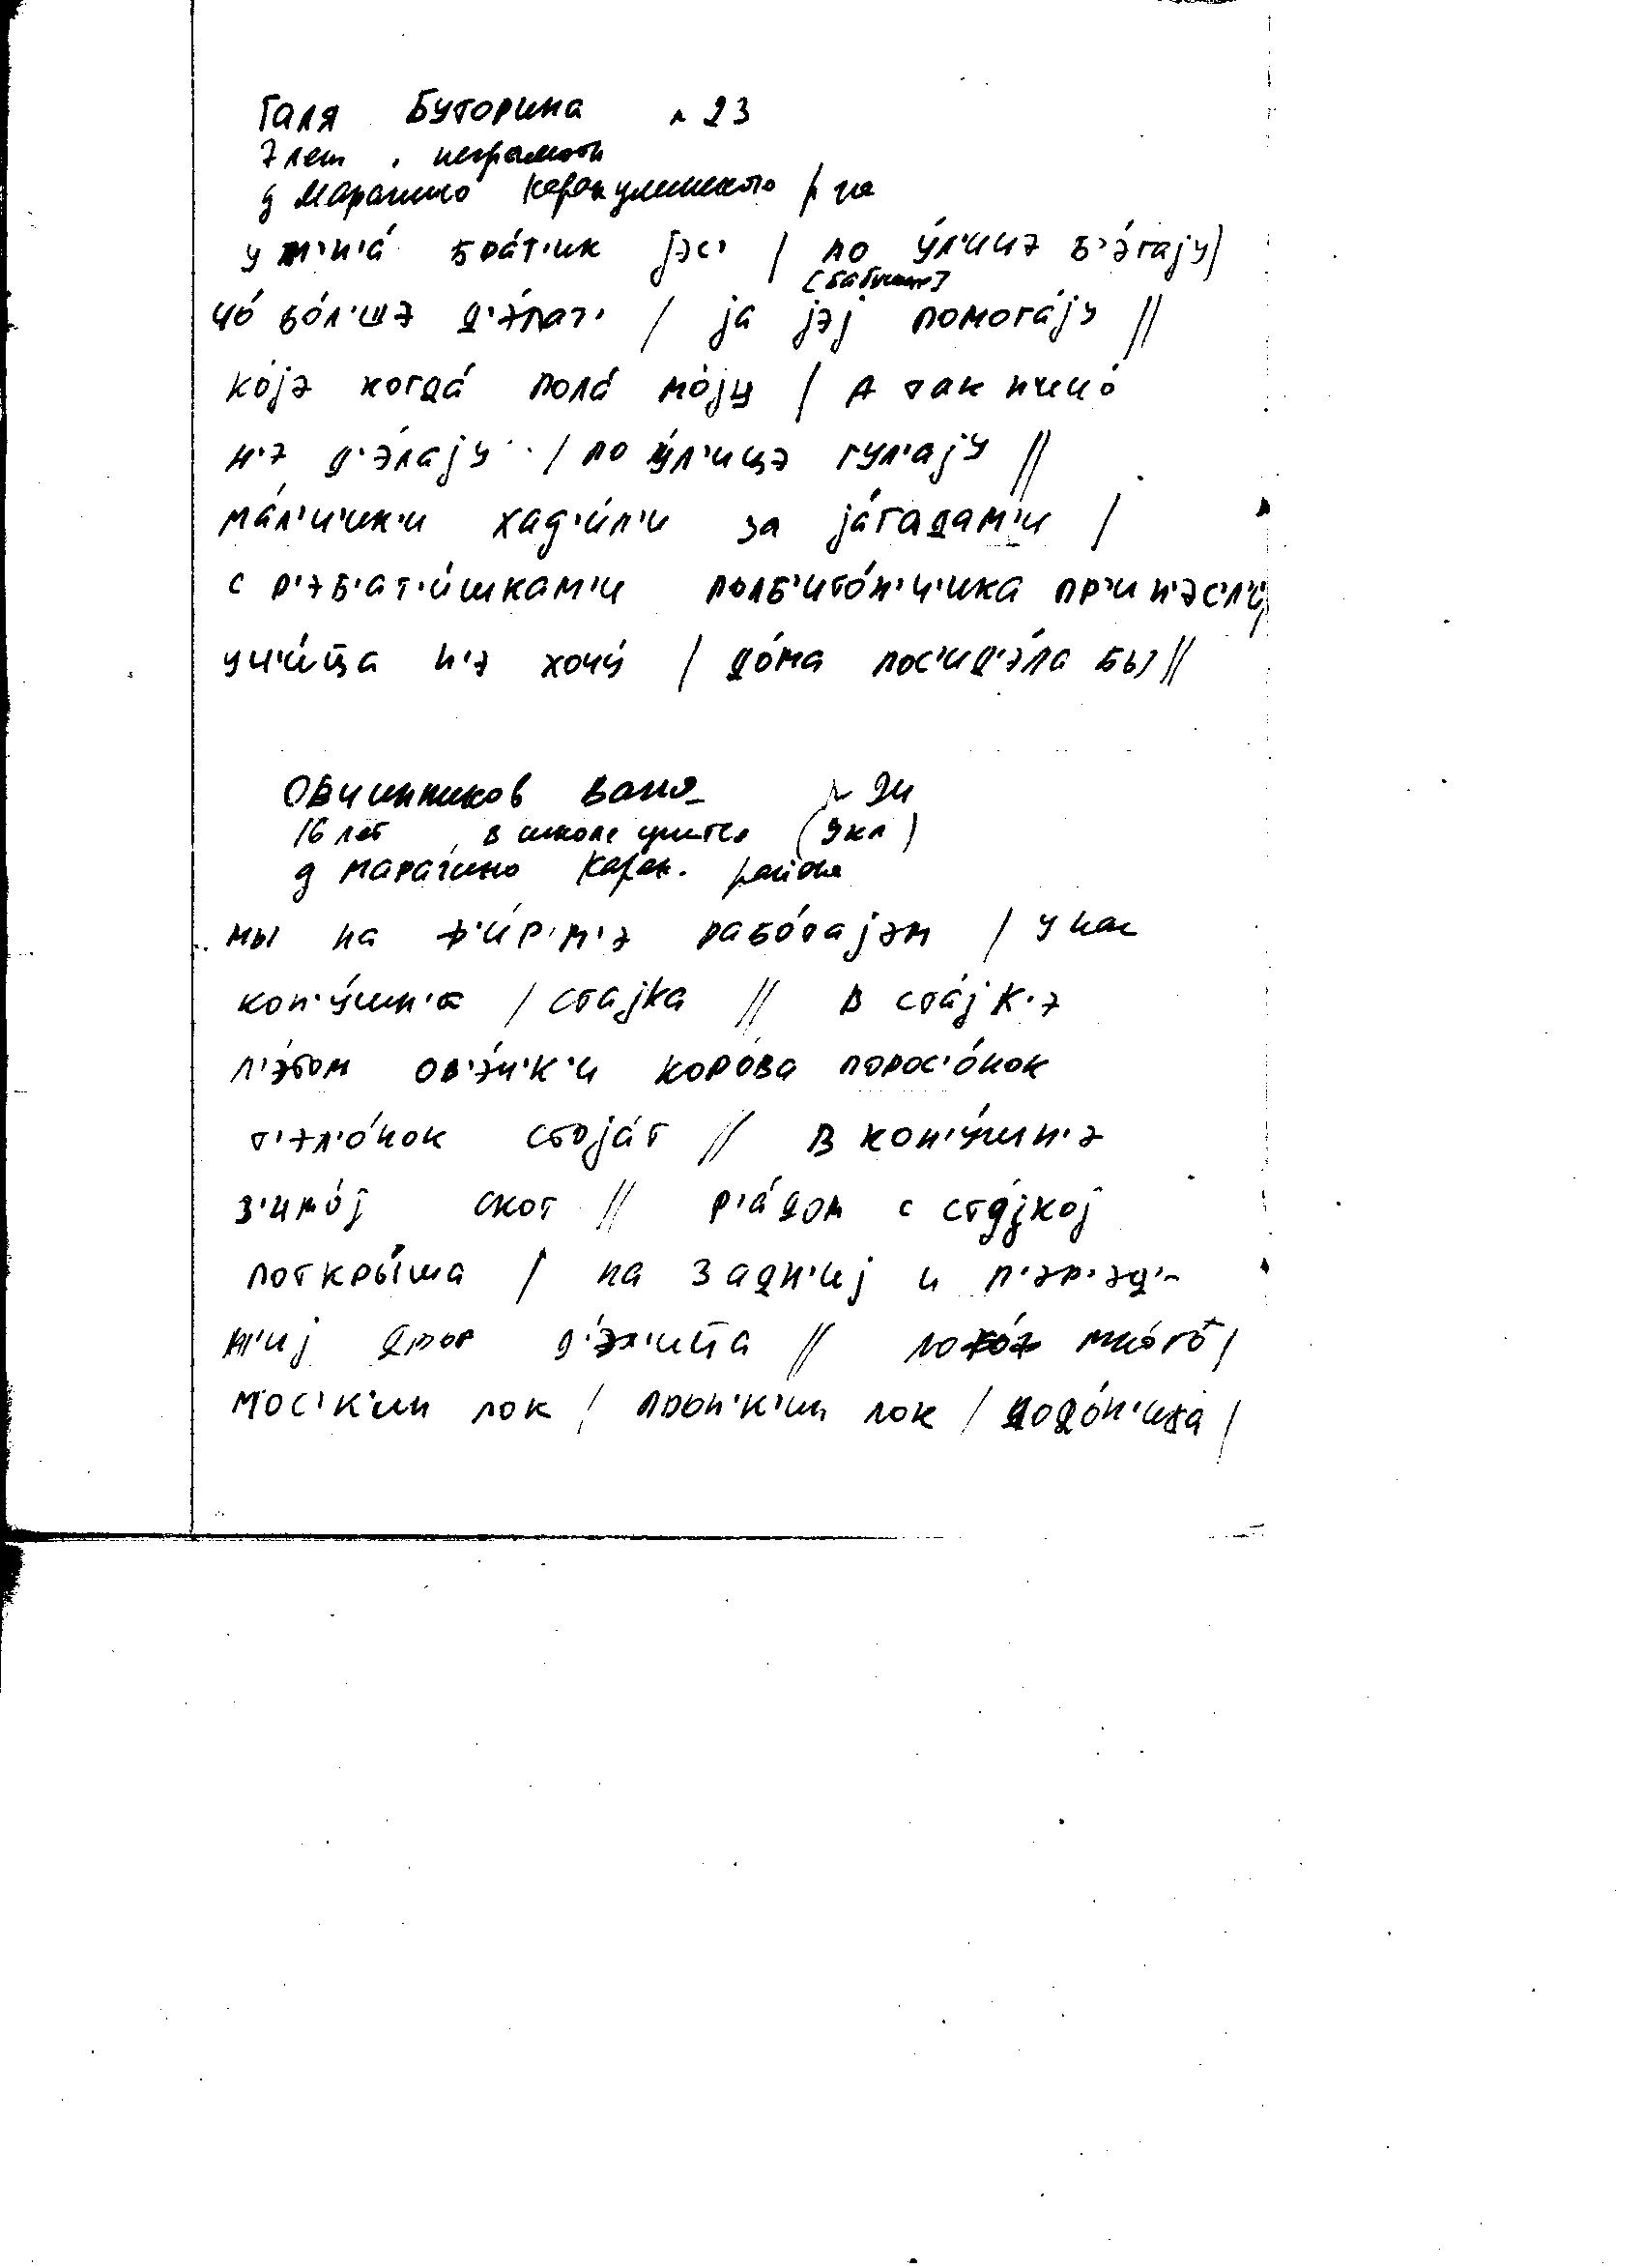 Галя Буторина 23
7 лет, неграмотн
д Марагино Каракулинского р-на
у м'н'á брáт'ик јэс' / по ýл'ицэ б'э́гајy /
[бабушке]
чó бóл'шэ д'э́лат' / ја јэј помогáјy //
кójэ когдá полá мójy / а так ничó
н'э д'э́лајy / по ýл'ицэ гул'ајy //
мáл'ч'ик'и хад'и́л'и за јáгадам'и /
с р'эб'ат'и́шкам'и полб'итóн'ч'ика пр'ин'эсл'и́ /
уч'и́ц̄а н'э хочý / дóма пос'ид'э́ла бы //
Овчинников Ваня 24
16 лет, в школе учится (9 кл)
д Марагино Карак. района
мы на ф'и́рм'э рабóтајэм / у нас
кон'ýшн'а / стајка // в стáјк'э
л'э́том ов'э́ч'к'и корóва порос'óнок
т'эл'óнок стојáт // в кон'ýшн'э
з'имóј скот // р'áдом с стáјкој
поткры́ша / на задн'иј и п'эр'эд'-
н'иј двор д'э́л'ица // мнóго /
мос'к'ин лок / прон'к'ин лок /